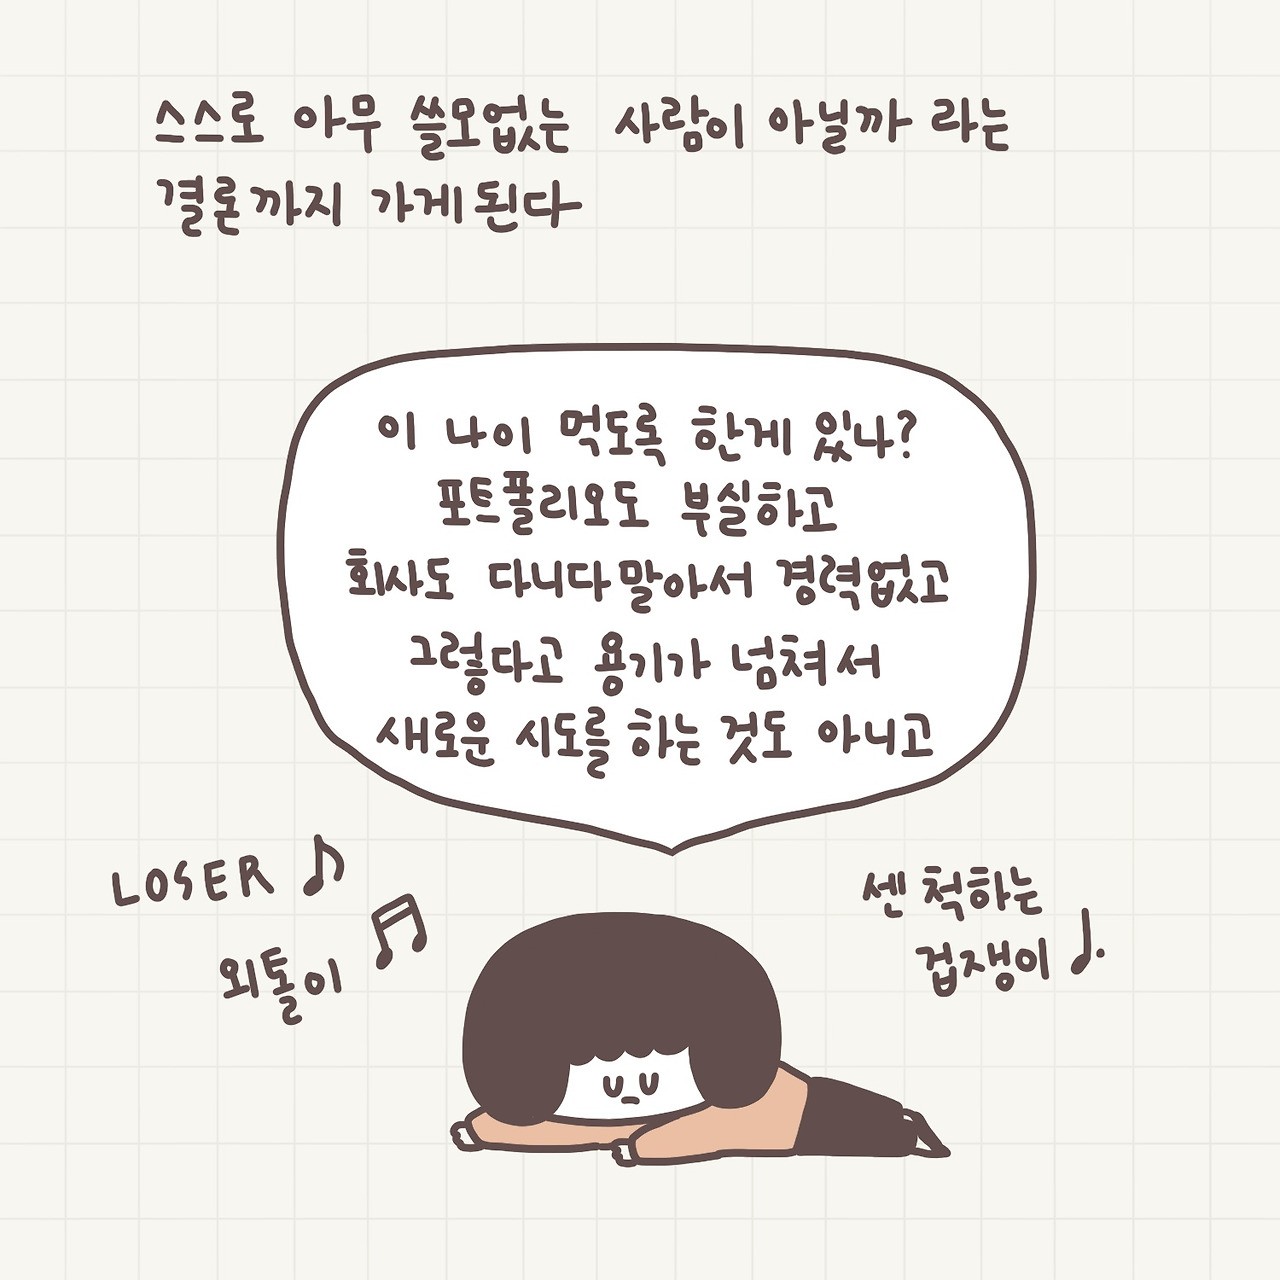 스스로 아무 쓸모없는 사람이 아닐까 라는
결론까지 가게된다
이 나이 먹도록 한게 있나?
포트폴리오도 부실하고
회사도 다니다말아서 경력없고
그렇다고 용기가 넘쳐서
새로운 시도를 하는 것도 아니고
LOSER
외톨이
센 척하는
겁쟁이